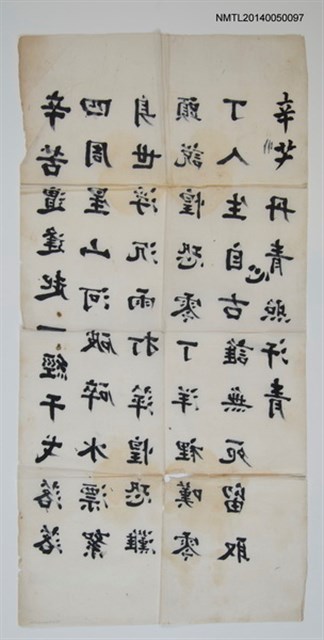 NMTL20140050097
辛苦遭逢起一經干戈落落
四周星山河破碎水漂絮
身世浮沉雨打萍惶恐灘
頭說惶恐零丁洋裡嘆零
丁人生自古誰無死留取
丹青心照汗青